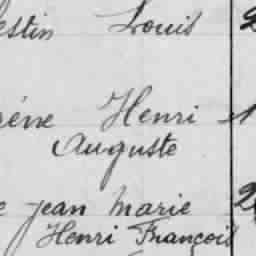 estin Louis 2
rène Henri 1
Auguste
e jean marie 2
Henri François